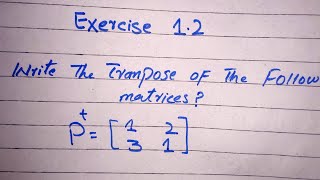 Exercise 1.2
Write The Tranpose of The Follow
matrices?
P^t = [ 1 2
3 1 ]